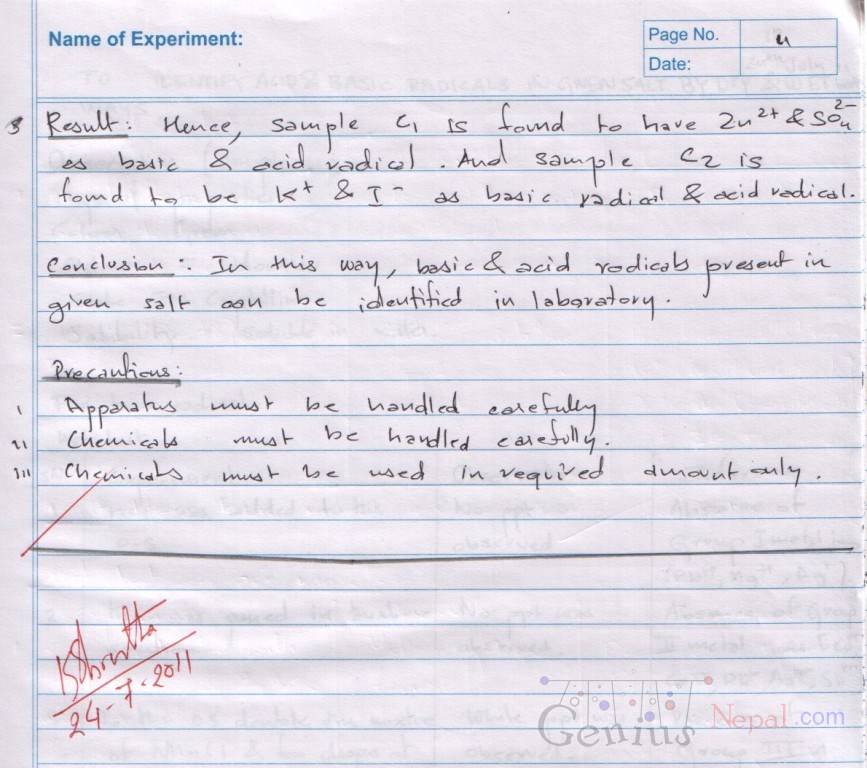 Name of Experiment:
Page No. 4
Date:
Result: Hence, sample C1 is found to have Zn2+ & SO4 2-
as basic & acid radical. And sample C2 is
found to be K+ & I- as basic radical & acid radical.
Conclusion: In this way, basic & acid radicals present in
given salt can be identified in laboratory.
Precautions:
i Apparatus must be handled carefully
ii Chemicals must be handled carefully.
iii Chemicals must be used in required amount only.
24-7-2011
Genius Nepal.com